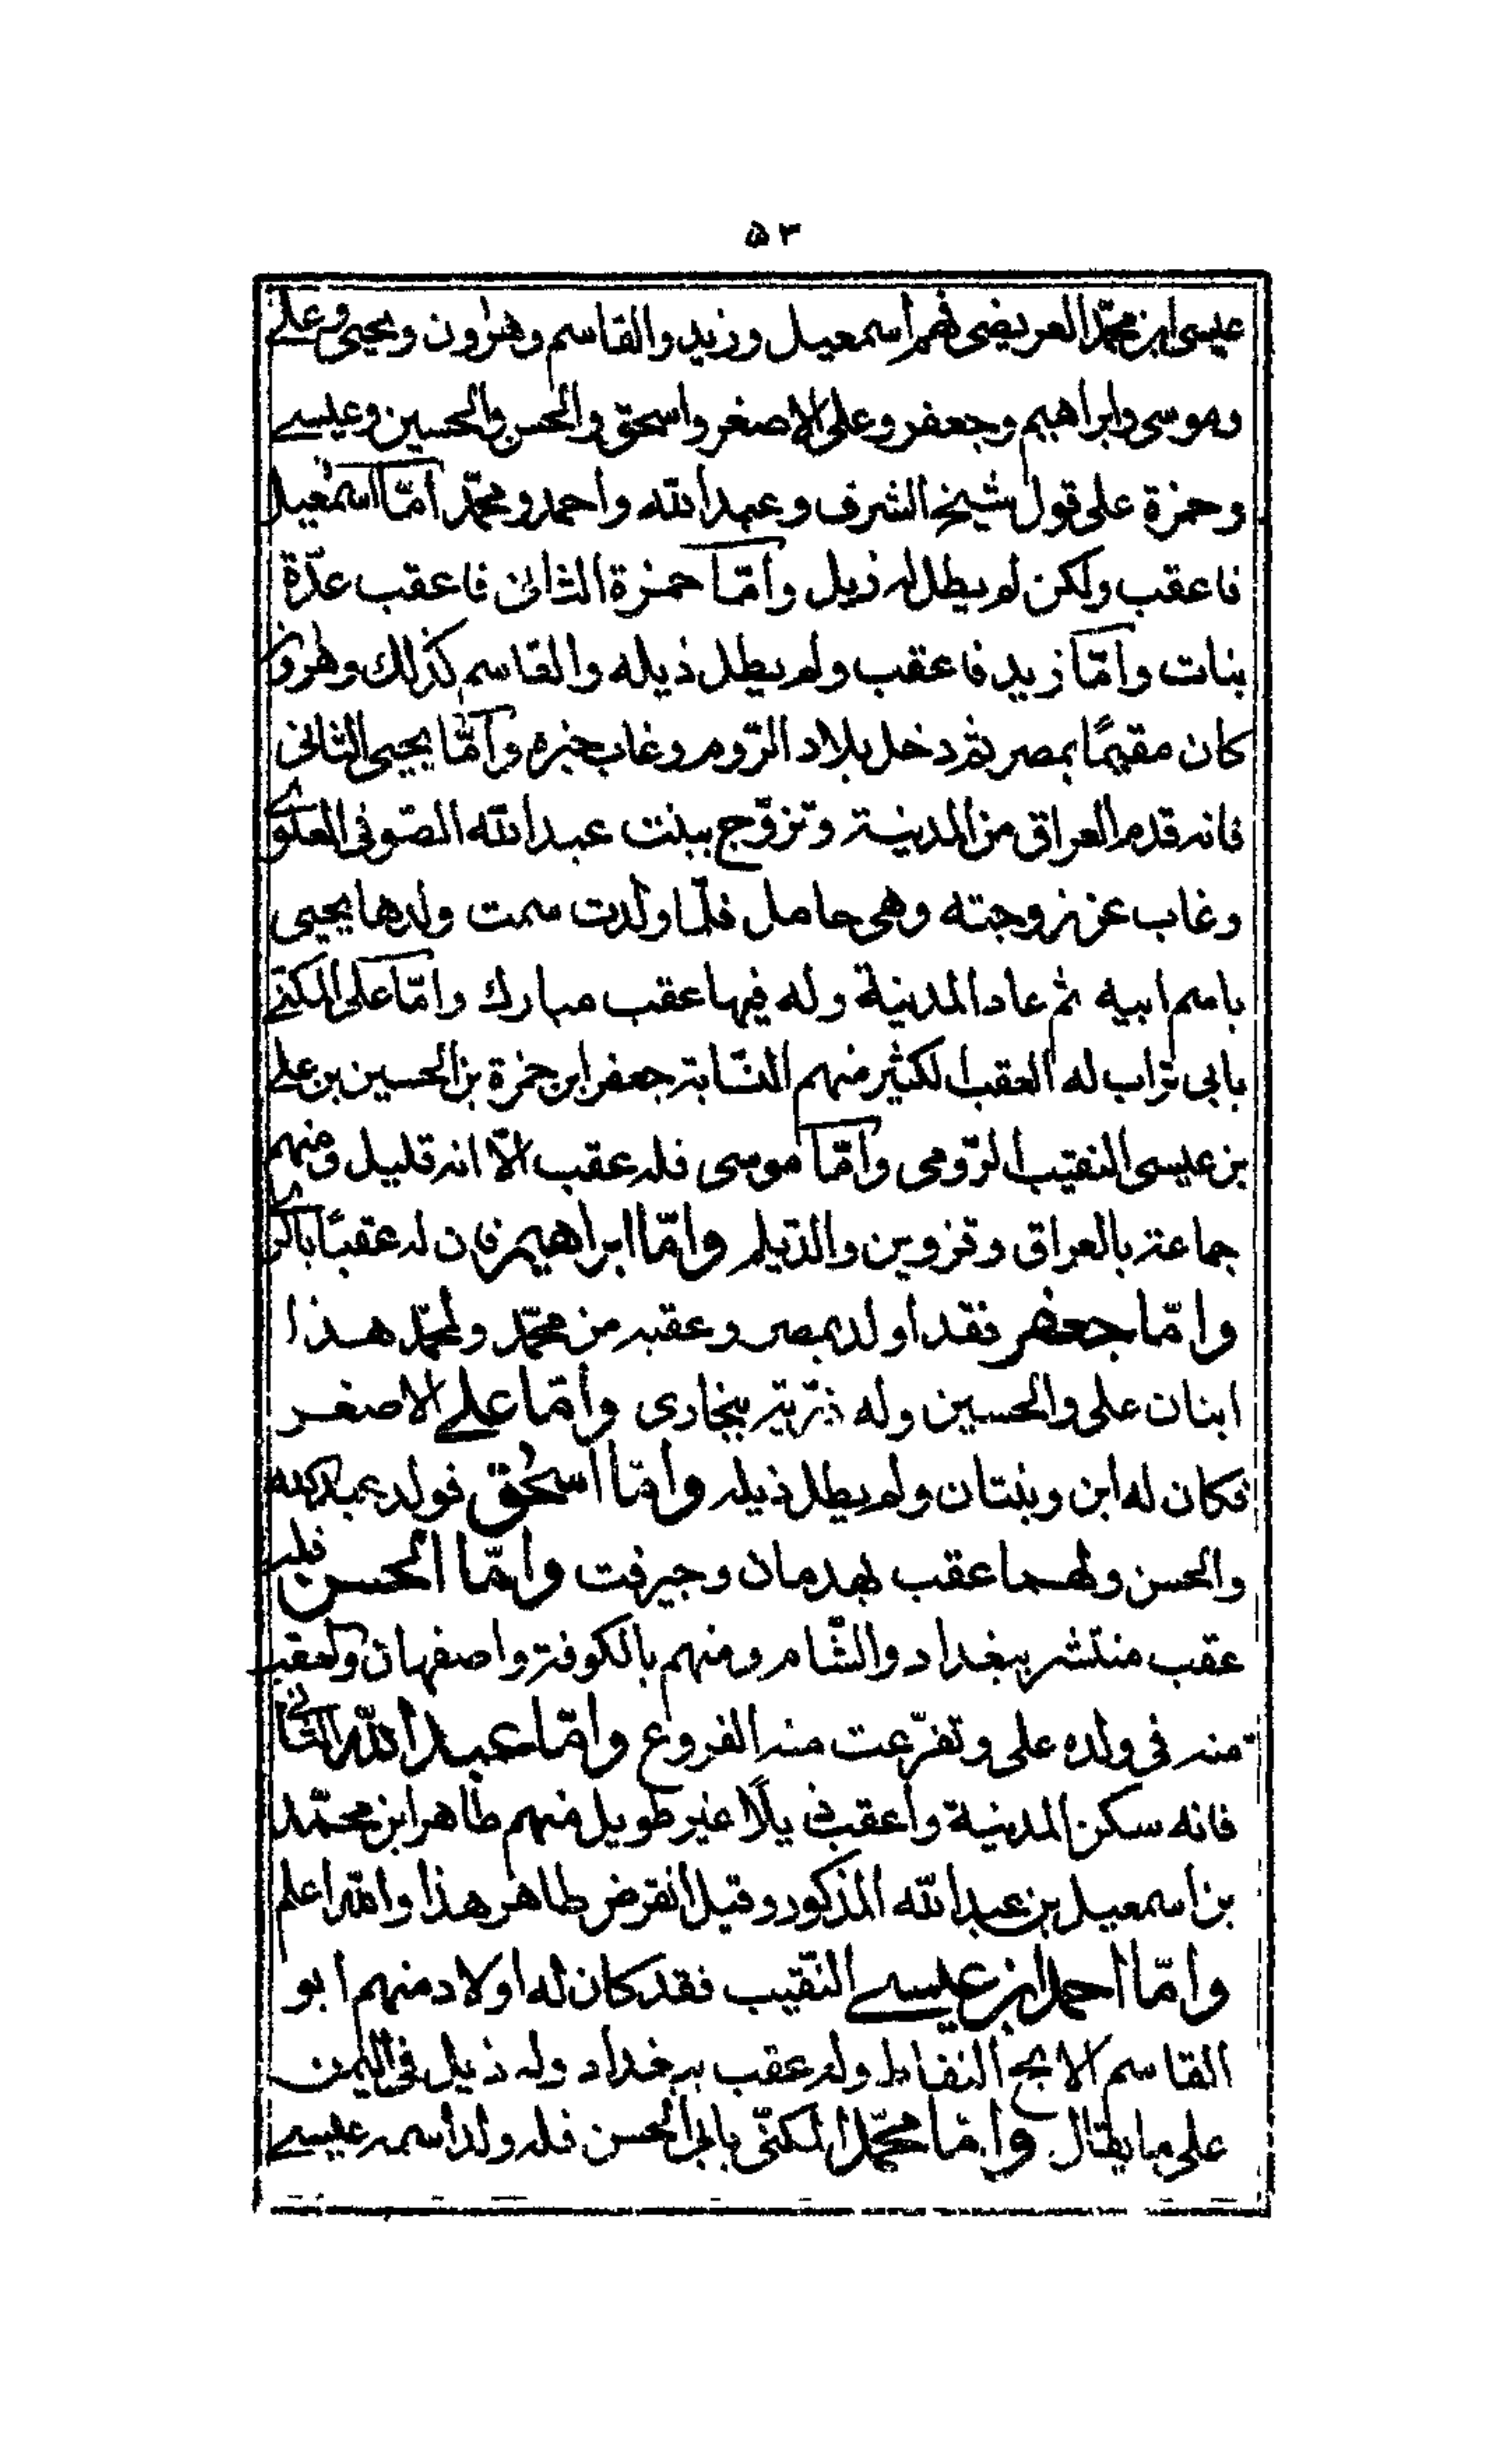 ٥٣
عيسى ابن محمّد العريضى فهم اسمعيل وزيد والقاسم وهٰرون ويحيى وعلے
وموسى وابراهيم وجعفر وعلى الاصغر واسحق والحسن والحسين وعيسے
وحمزة على قول شيخ الشرف وعبدالله واحمد ومحمّد امّا اسمٰعيل
فاعقب ولكن لم يطل له ذيل وامّا حمزة الثانى فاعقب عدّة
بنات وامّا زيد فاعقب ولم يطل ذيله والقاسم كذلك وهٰرون
كان مقيمًا بمصر ثم دخل بلاد الرّوم وغاب خبره وامّا يحيى الثانى
فانه قدم العراق من المدينة وتزوّج ببنت عبدالله الصّوفى العلوے
وغاب عن زوجته وهى حامل فلمّا ولدت سمت ولدها يحيى
باسم ابيه ثم عاد المدينة وله فيها عقب مبارك وامّا على المكنّے
بابى تراب له العقب الكثير منهم النسّابة جعفر ابن حمزة بن الحسين بن علے
بن عيسى النقيب الرّومى وامّا موسى فله عقب الّا انه قليل ومنهم
جماعة بالعراق وقزوين والدّيلم وامّا ابراهيم فان له عقبًا بالرے
وامّا جعفر فقد اولد بمصر وعقبه من محمّد ولمحمّد هذا
ابنان على والحسين وله ذرّية ببخارى وامّا علے الاصغر
فكان له ابن وبنتان ولم يطل ذيله وامّا اسحٰق فولد عبدالله
والحسن ولهما عقب بهدمان وجيرفت وامّا الحسن فله
عقب منتشر ببغداد والشّام ومنهم بالكوفة واصفهان والعقب
منه فى ولده على وتفرّعت منه الفروع وامّا عبدالله الثانے
فانه سكن المدينة واعقب ذيلًا غير طويل منهم طاهر ابن محمّد
بن اسمعيل بن عبدالله المذكور وقيل انقرض طاهر هذا والله اعلم
وامّا احمد ابن عيسے النّقيب فقد كان له اولاد منهم ابو
القاسم الابح النفاط وله عقب ببغداد وله ذيل فى اليمن
على ما يقال وامّا محمّد المكنّى بابى الحسن فله ولد اسمه عيسے